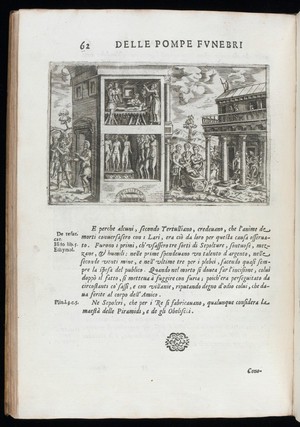 62
DELLE POMPE FVNEBRI
E perche alcuni, secondo Tertulliano, credeuano, che l'anime de
morti conuersassero con i Lari, era ciò da loro per questa causa osserua-
to. Furono i primi, ch'vsassero tre sorti di Sepolture, sontuose, mez-
zane, & humili: nelle prime spendeuano vn talento d'argento, nelle
seconde venti mine, e nell'vltime tre per i plebei, facendo quasi sem-
pre la spesa del publico. Quando nel morto si doueua far l'incisione, colui
doppò il fatto, si metteua à fuggire con furia; poich'era perseguitato da
circostanti co' sassi, e con villanie, riputando degno d'odio colui, che da-
ua ferite al corpo dell'Amico.
Ne Sepolcri, che per i Re si fabricauano, qualunque considera la
maestà delle Piramidi, e de gli Obelisci.
De resur.
car.
Plin.